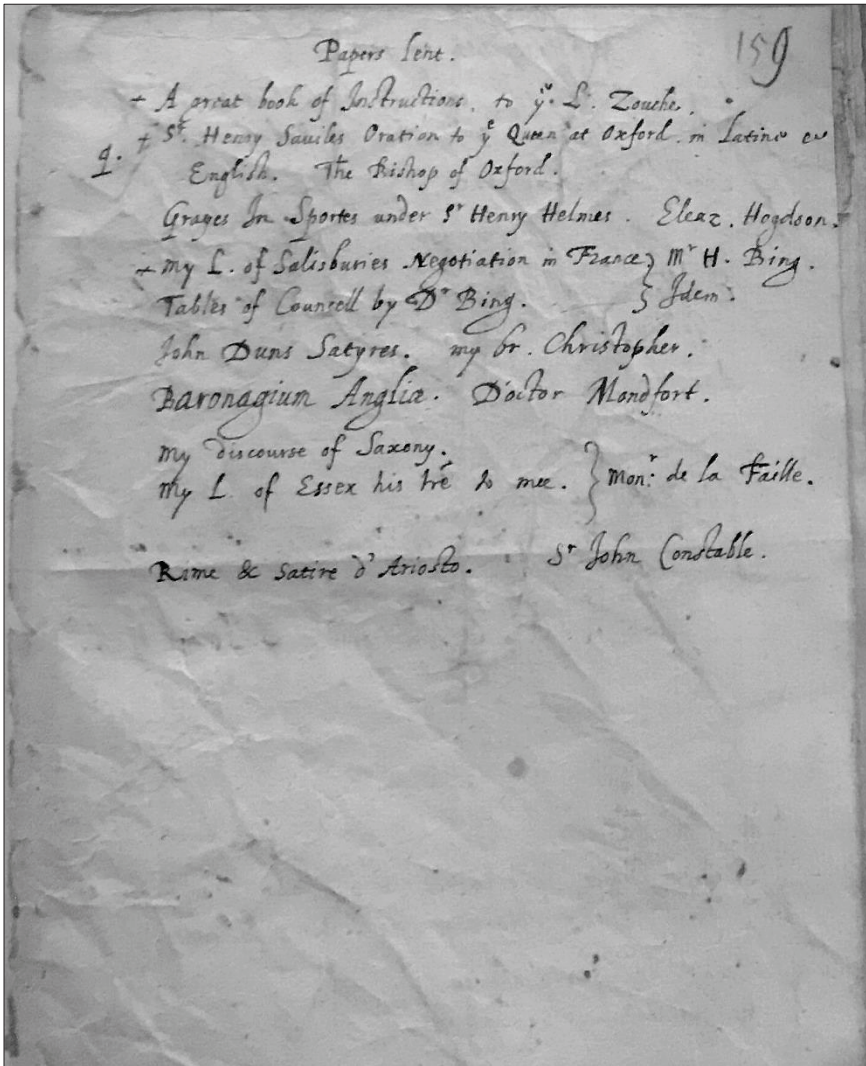 159
Papers lent.
+ A great book of Instructions. to yͤ L. Zouche.
+ Sʳ. Henry Saviles Oration to yͤ Queen at Oxford. in Latine &
q. English. The Bishop of Oxford.
Grayes In Sportes under Sʳ Henry Helmes. Eleaz. Hogdson.
+ my L. of Salisburies Negotiation in France } Mʳ H. Bing.
Tables of Councell by Dʳ Bing. } Idem.
John Duns Satyres. my br. Christopher.
Baronagium Angliæ. Doctor Mondfort.
my discourse of Saxony.
my L. of Essex his lr̃e to mee. } Monʳ: de la Faille.
Rime & Satire d'Ariosto. Sʳ John Constable.